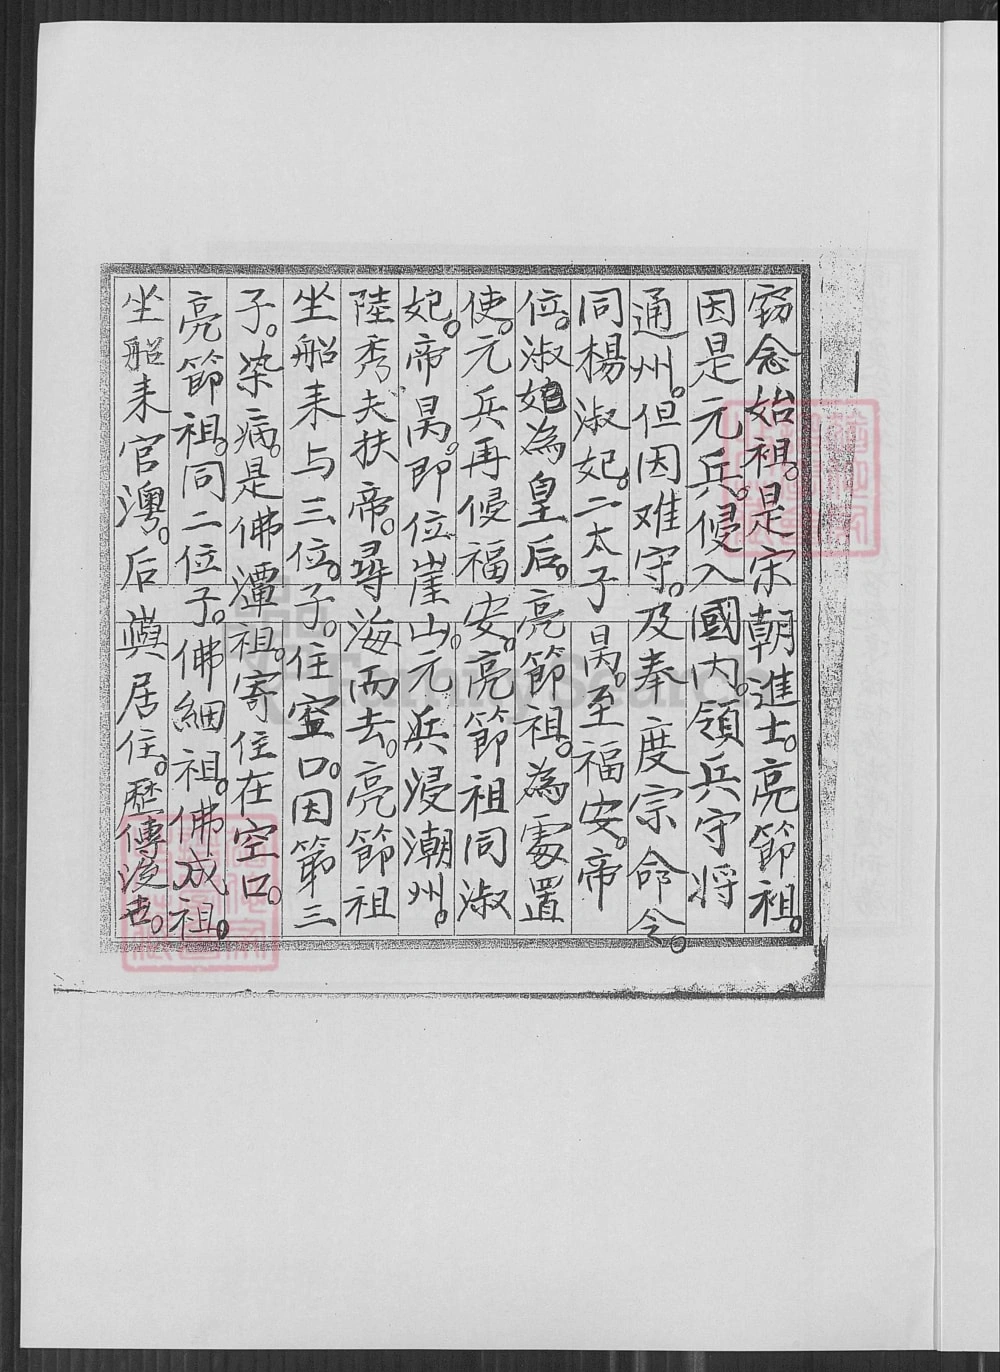 竊念始祖。是宋朝進士。亮節祖。
因是元兵。侵入國內。領兵守将
通州。但因难守。及奉度宗命令。
同楊淑妃。二太子昺。至福安。帝
位。淑妃為皇后。亮節祖。為處置
使。元兵再侵福安。亮節祖同淑
妃。帝昺。即位崖山。元兵浸潮州。
陸秀夫扶帝。尋海而去。亮節祖
坐船耒与三位。子。住 口。因第三
子。染病。是佛潭祖。寄住在空口。
亮節祖。同二位子。佛細祖。佛成祖。
坐船耒官澳。后 居住。歷傳後世。
FamilySearch